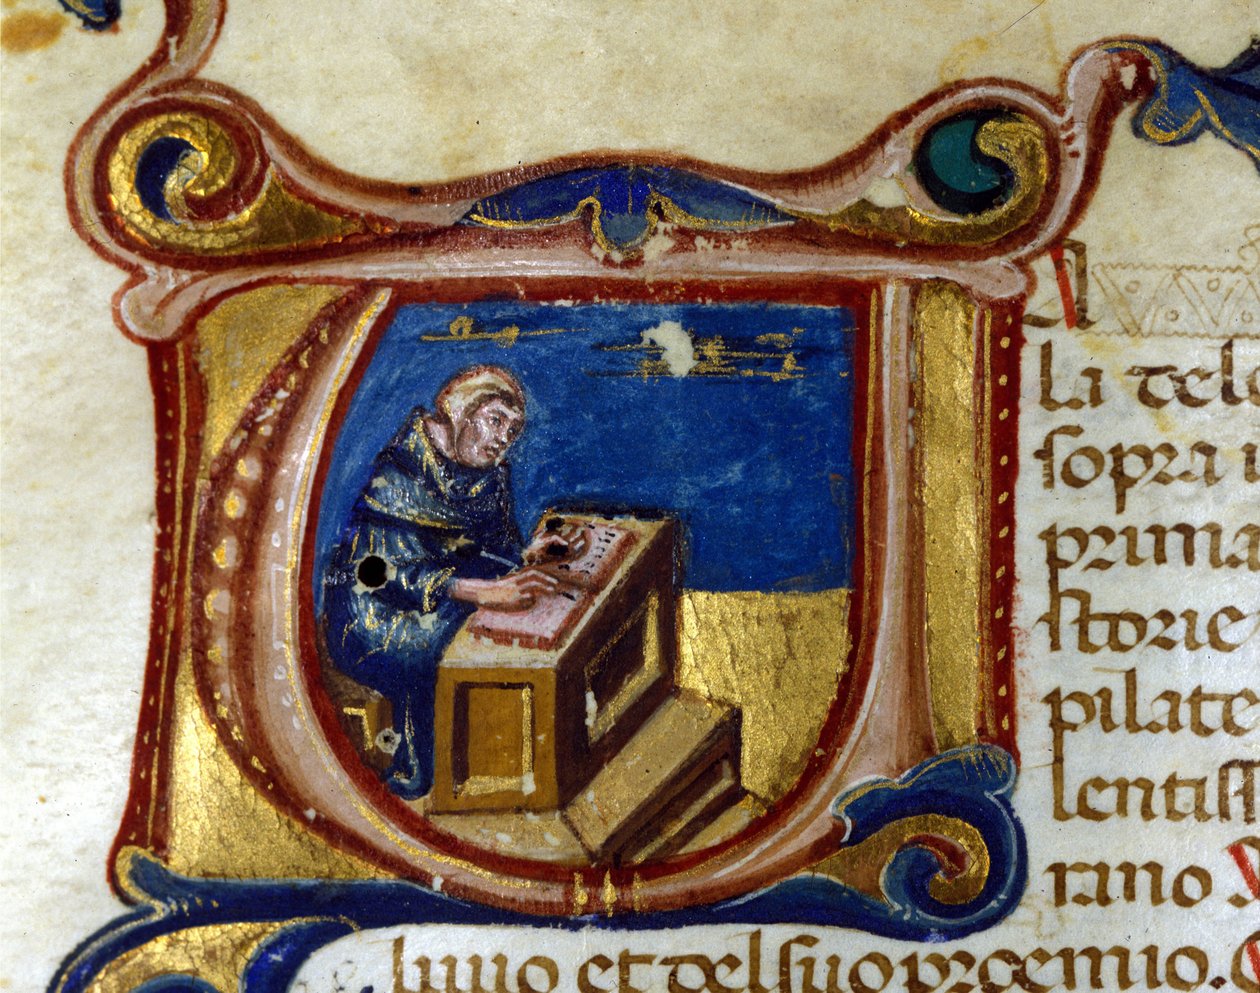 la del
sopra
prima
storie
pilate
lentiss
rimo
livio et del suo proemio.